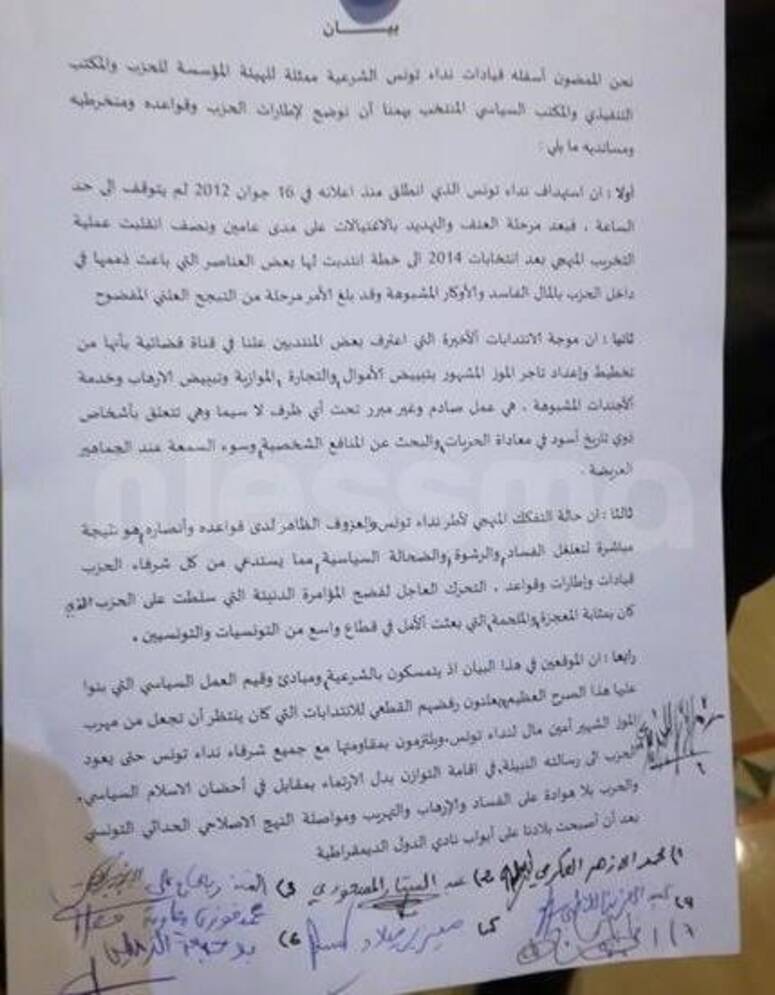 بيـــان
نحن الممضون أسفله قيادات نداء تونس الشرعية ممثلة للهيئة المؤسسة للحزب والمكتب
التنفيذي والمكتب السياسي المنتخب يهمنا أن نوضح لإطارات الحزب وقواعده ومنخرطيه
ومسانديه ما يلي :
أولا : ان استهداف نداء تونس الذي انطلق منذ اعلانه في 16 جوان 2012 لم يتوقف الى حد
الساعة . فبعد مرحلة العنف والتهديد بالاغتيالات على مدى عامين ونصف انقلبت عملية
التخريب المنهجي بعد انتخابات 2014 الى خطة انتدبت لها بعض العناصر التي باعت ذممها في
داخل الحزب بالمال الفاسد والأوكار المشبوهة وقد بلغ الأمر مرحلة من التبجح العلني المفضوح
ثانيا : ان موجة الانتدابات الأخيرة التي اعترف بعض المنتدبين علنا في قناة فضائية بأنها من
تخطيط وإعداد تاجر الموز المشهور بتبييض الأموال والتجارة الموازية وتبييض الارهاب وخدمة
الأجندات المشبوهة . هي عمل صادم وغير مبرر تحت أي ظرف لا سيما وهي تتعلق بأشخاص
ذوي تاريخ أسود في معاداة الحريات والبحث عن المنافع الشخصية وسوء السمعة عند الجماهير
العريضة .
nessma
ثالثا : ان حالة التفكك المنهجي لأطر نداء تونس والعزوف الظاهر لدى قواعده وأنصاره هو نتيجة
مباشرة لتغلغل الفساد والرشوة والضحالة السياسية مما يستدعي من كل شرفاء الحزب
قيادات وإطارات وقواعد . التحرك العاجل لفضح المؤامرة الدنيئة التي سلطت على الحزب الذي
كان بمثابة المعجزة والملحمة التي بعثت الأمل في قطاع واسع من التونسيات والتونسيين .
رابعا : ان الموقعين في هذا البيان اذ يتمسكون بالشرعية ومبادئ وقيم العمل السياسي التي بنوا
عليها هذا الصرح العظيم يعلنون رفضهم القطعي للانتدابات التي كان ينتظر أن تجعل من مهرب
الموز الشهير أمين مال لنداء تونس ويلتزمون بمقاومتها مع جميع شرفاء نداء تونس حتى يعود
الحزب الى رسالته النبيلة في اقامة التوازن بدل الارتماء بمقابل في أحضان الاسلام السياسي .
والحرب بلا هوادة على الفساد والإرهاب والتهريب ومواصلة النهج الاصلاحي الحداثي التونسي
بعد أن أصبحت بلادنا على أبواب نادي الدول الديمقراطية
1) محمد الازهر العكرمي 2) عبد الستار المسعودي 3)
4) عبد العزيز
5) 6)
7)